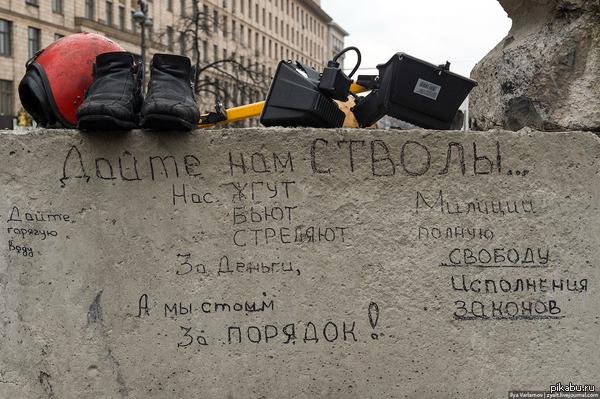 Дайте нам СТВОЛЫ...
Нас ЖГУТ
БЬЮТ
СТРЕЛЯЮТ
За Деньги,
А мы стоим
За ПОРЯДОК!
Дайте
горячую
воду
Милиции
полную
СВОБОДУ
Исполнения
ЗАКОНОВ
Ilya Varlamov | zyalt.livejournal.com
pikabu.ru